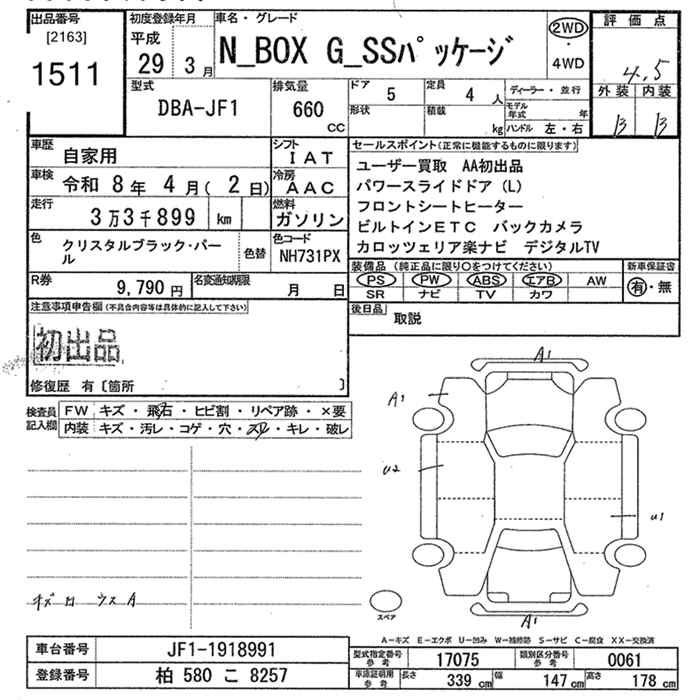 出品番号
[2163]
1511
初度登録年月
平成
29年 3月
車名・グレード
N_BOX G_SSパッケージ
2WD
・
4WD
評価点
4.5
外装 内装
B B
型式
DBA-JF1
排気量
660
CC
ドア 5
定員 4 人
形状
積載 kg
ディーラー・並行
モデル年式 年
ハンドル 左・右
車歴 自家用
シフト IAT
車検 令和 8年 4月( 2日)
冷房 AAC
走行 3万3千899 km
燃料 ガソリン
色 クリスタルブラック・パール
色替
色コード NH731PX
R券 9,790円
名変通知期限 月 日
セールスポイント(正常に機能するものに限ります)
ユーザー買取 AA初出品
パワースライドドア(L)
フロントシートヒーター
ビルトインETC バックカメラ
カロッツェリア楽ナビ デジタルTV
装備品 (純正品に限り○をつけてください)
PS PW ABS エアB AW
SR ナビ TV カワ
新車保証書
有・無
後日品 取説
注意事項申告欄(不具合内容等は具体的に記入して下さい)
初出品
修復歴 有〔箇所 〕
検査員記入欄
FW キズ・飛石・ヒビ割・リペア跡・×要
内装 キズ・汚レ・コゲ・穴・スレ・キレ・破レ
A1
A1
U2
U1
A1
スペア
A-キズ E-エクボ U-凹み W-補修跡 S-サビ C-腐食 XX-交換済
車台番号 JF1-1918991
登録番号 柏 580 こ 8257
型式指定番号 参考 17075
類別区分番号 参考 0061
車庫証明用 参考 長さ 339cm 幅 147cm 高さ 178cm